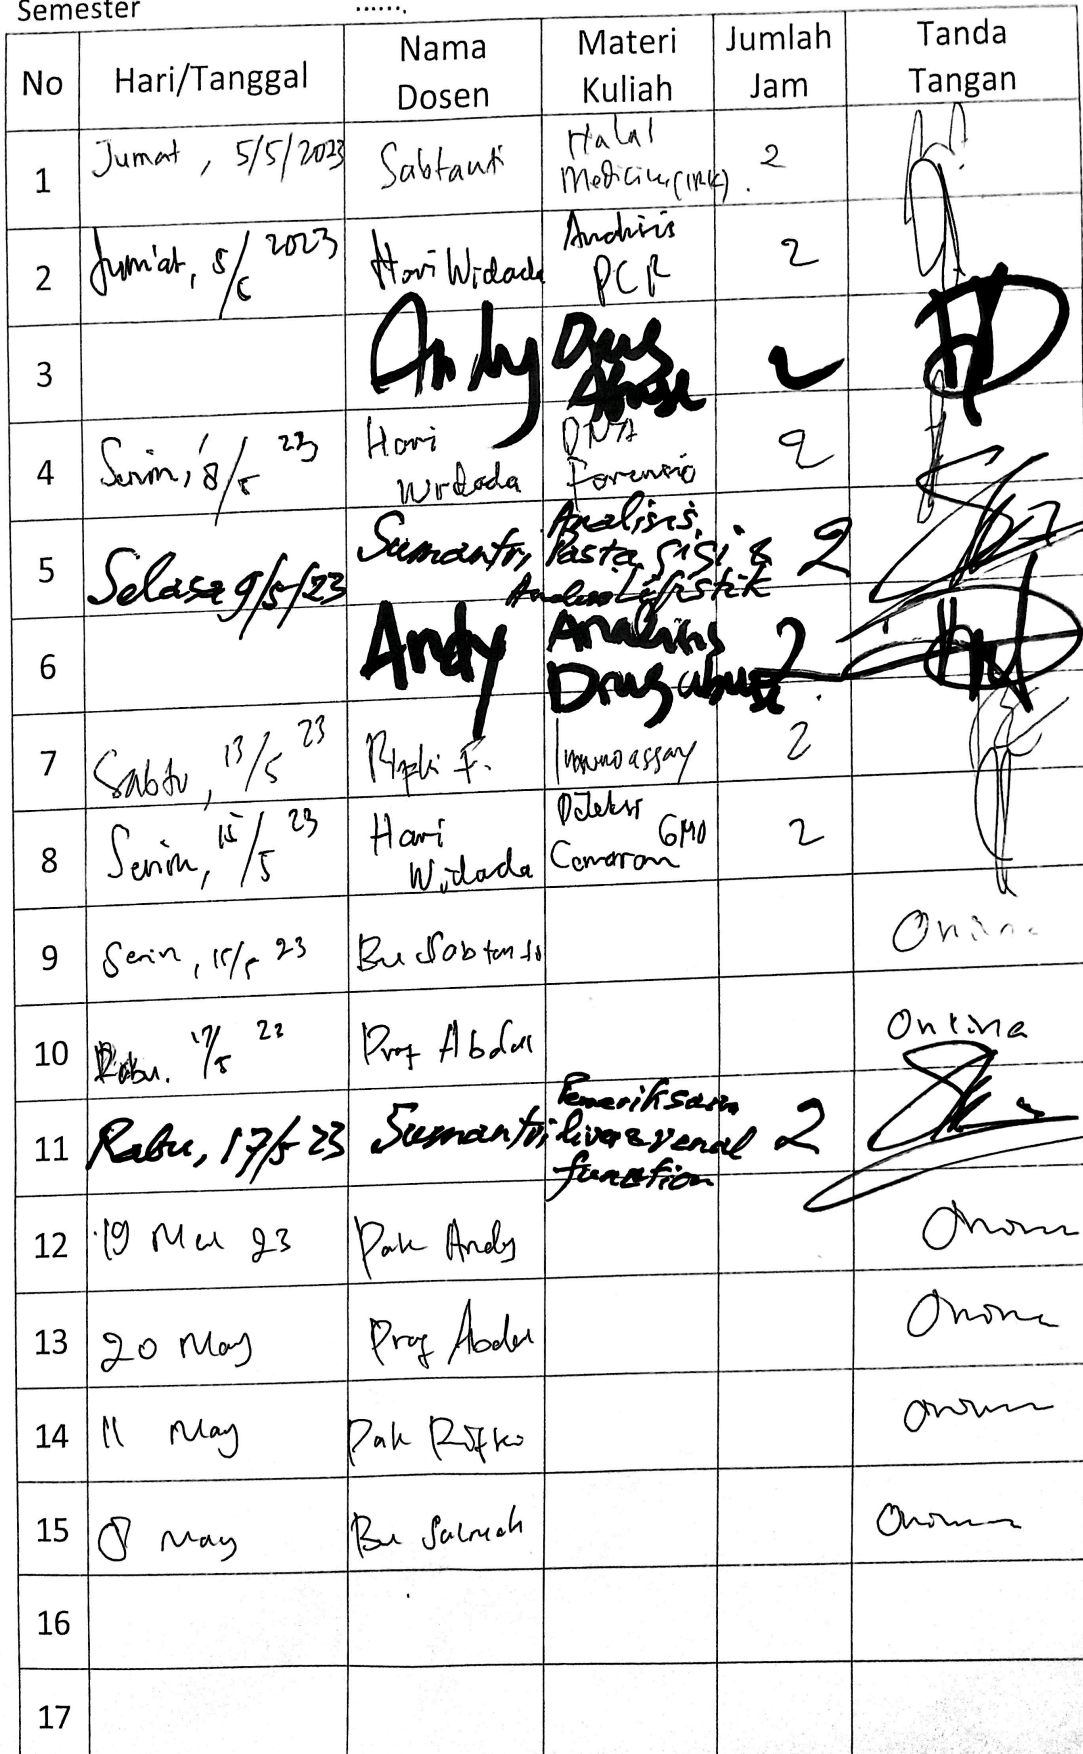 Semester ......
No Hari/Tanggal Nama Dosen Materi Kuliah Jumlah Jam Tanda Tangan
1 Jumat, 5/5/2023 Sabtanti Halal Medicine (IRK). 2
2 Jum'at, 5/5 2023 Hari Widada Analisis PCR 2
3 Andy Drug Abuse 2
4 Senin, 8/5 23 Hari Widada DNA Forensic 2
5 Selasa 9/5/23 Sumantri Analisis Pasta gigi & Analisis Lipstik 2
6 Andy Analisis Drug abuse 2
7 Sabtu, 13/5 23 Rizki F. Immunoassay 2
8 Senin, 15/5 23 Hari Widada Deteksi GMO Cemaran 2
9 Senin, 15/5 23 Bu Sabtanti Online
10 Rabu. 17/5 23 Prof Abdul Online
11 Rabu, 17/5 23 Sumantri Pemeriksaan liver & renal function 2
12 19 Mei 23 Pak Andy Online
13 20 May Prof Abdul Online
14 11 May Pak Online
15 8 May Bu Online
16
17